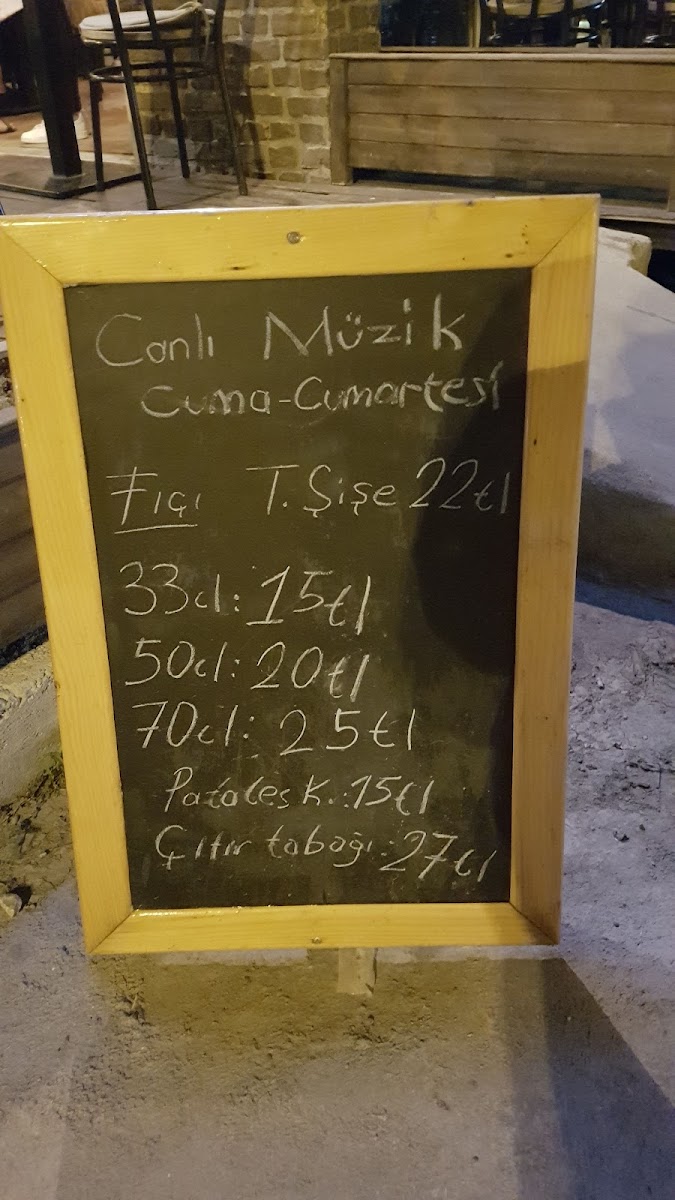 Canlı Müzik
Cuma-Cumartesi
Fıçı T. Şişe 22tl
33cl: 15tl
50cl: 20tl
70cl: 25tl
Patates K.: 15tl
Çıtır tabağı: 27tl